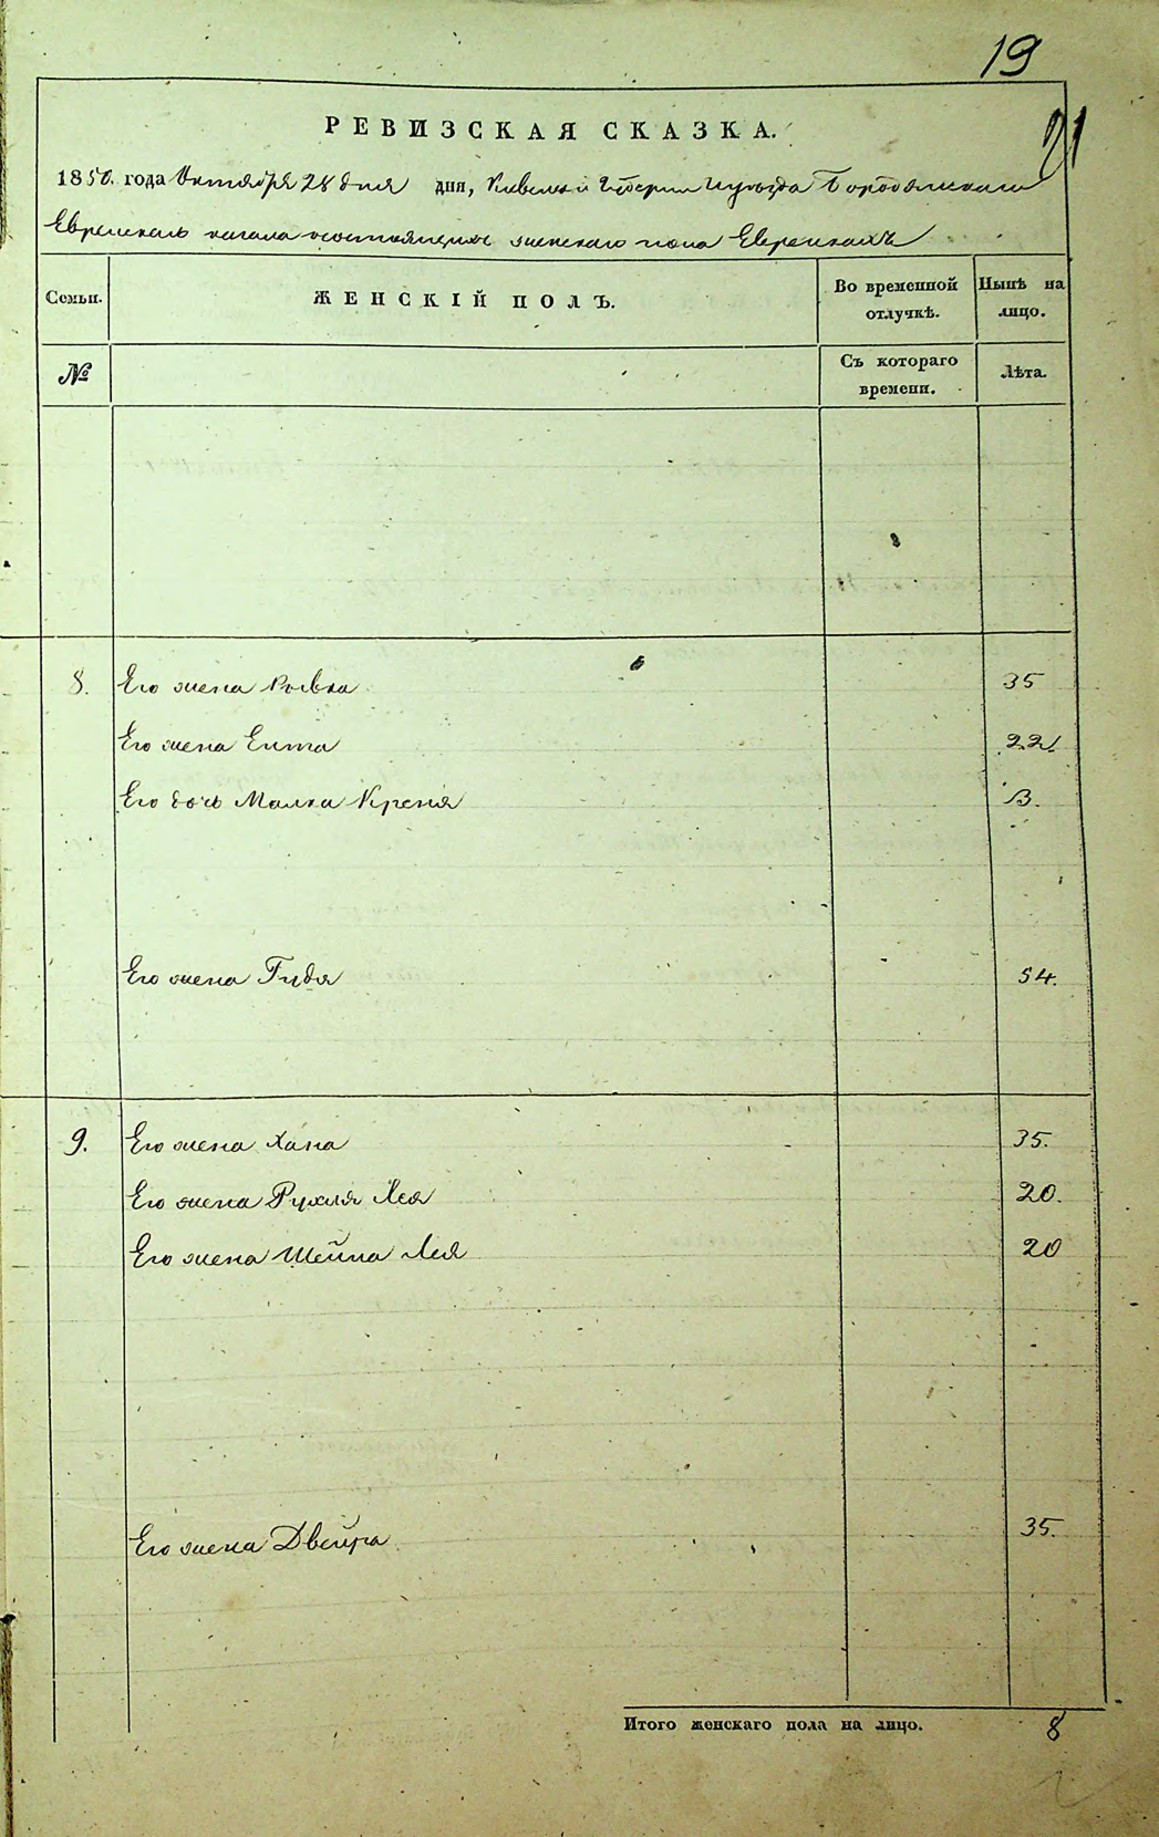 19
21
РЕВИЗСКАЯ СКАЗКА.
1850. года Октября 28 дня дня, Киевской Губернии и уезда Бородянскаго
Еврейскаго кагала о состоящихъ женскаго пола Евреикахъ
Семьи. ЖЕНСКІЙ ПОЛЪ. Во временной отлучкѣ. Нынѣ на лицо.
№ Съ котораго времени. Лѣта.
8. Его жена Ривка 35
Его жена Ента 22.
Его дочь Малка Креня 3.
Его жена Гидя 54.
9. Его жена Хана 35.
Его жена Рухля Лея 20.
Его жена Шейна Лея 20
Его жена Двейра 35.
Итого женскаго пола на лицо. 8